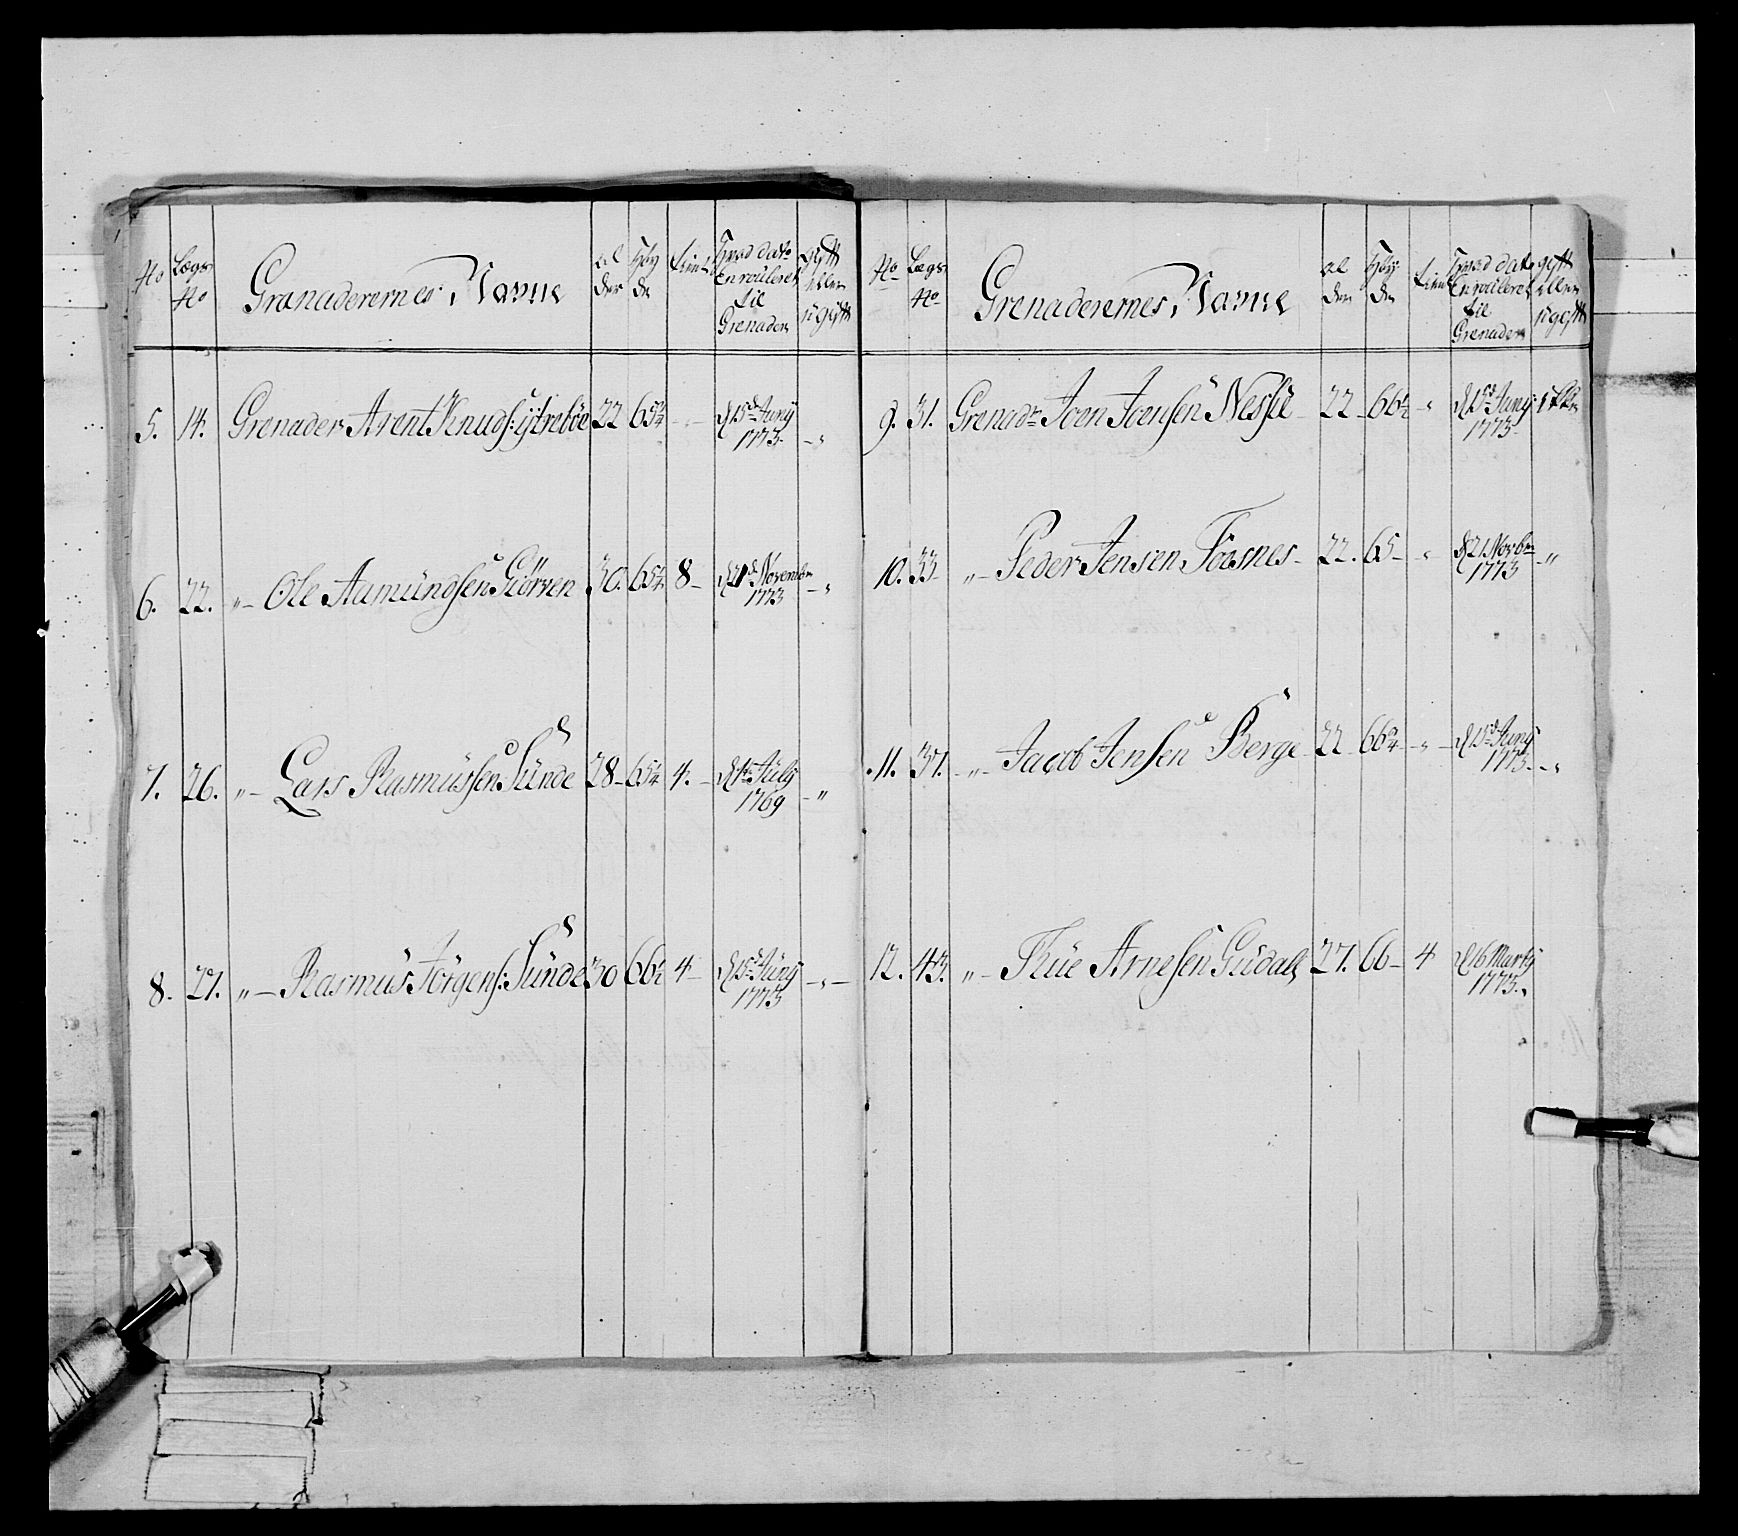 No Lægs No Grenaderernes Navne al der Høy de tient Hvad dato Enroulleret til Grenader gift eller ugift
5. 14. Grenader Arent Knuds: ytrebøe 22 65¾ - - d 15de Juny 1773. - "
6. 22. "- Ole Aamundsen Giörven 30. 65¼ 8 - d 21de Novembr 1773 - "
7. 26. "- Lars Rasmussen Sunde 28 - 65¼ 4. - d 1te July 1769 - "
8. 27. "- Rasmus Jörgens: Sunde 30 66½ 4 - d 15de Juny 1773 - " -
No Lægs No Grenaderernes Navne al der Høy de tient Hvad dato Enroulleret til Grenader gift eller ugift
9. 31. Grenadr Joen Joensen Nessie 22 66½ " d 15de Juny 1773
10. 33 "- Peder Jensen Föesnes - 22. 65 - " d 21 Novbr 1773 - "
11. 37. - "- Jacob Jensen Berge 22 66¾ - " - d 15de Juny 1773. - "
12. 43. "- Thüe Arnesen Gudals 27. 66 - 4 d 16 Marty 1773. "